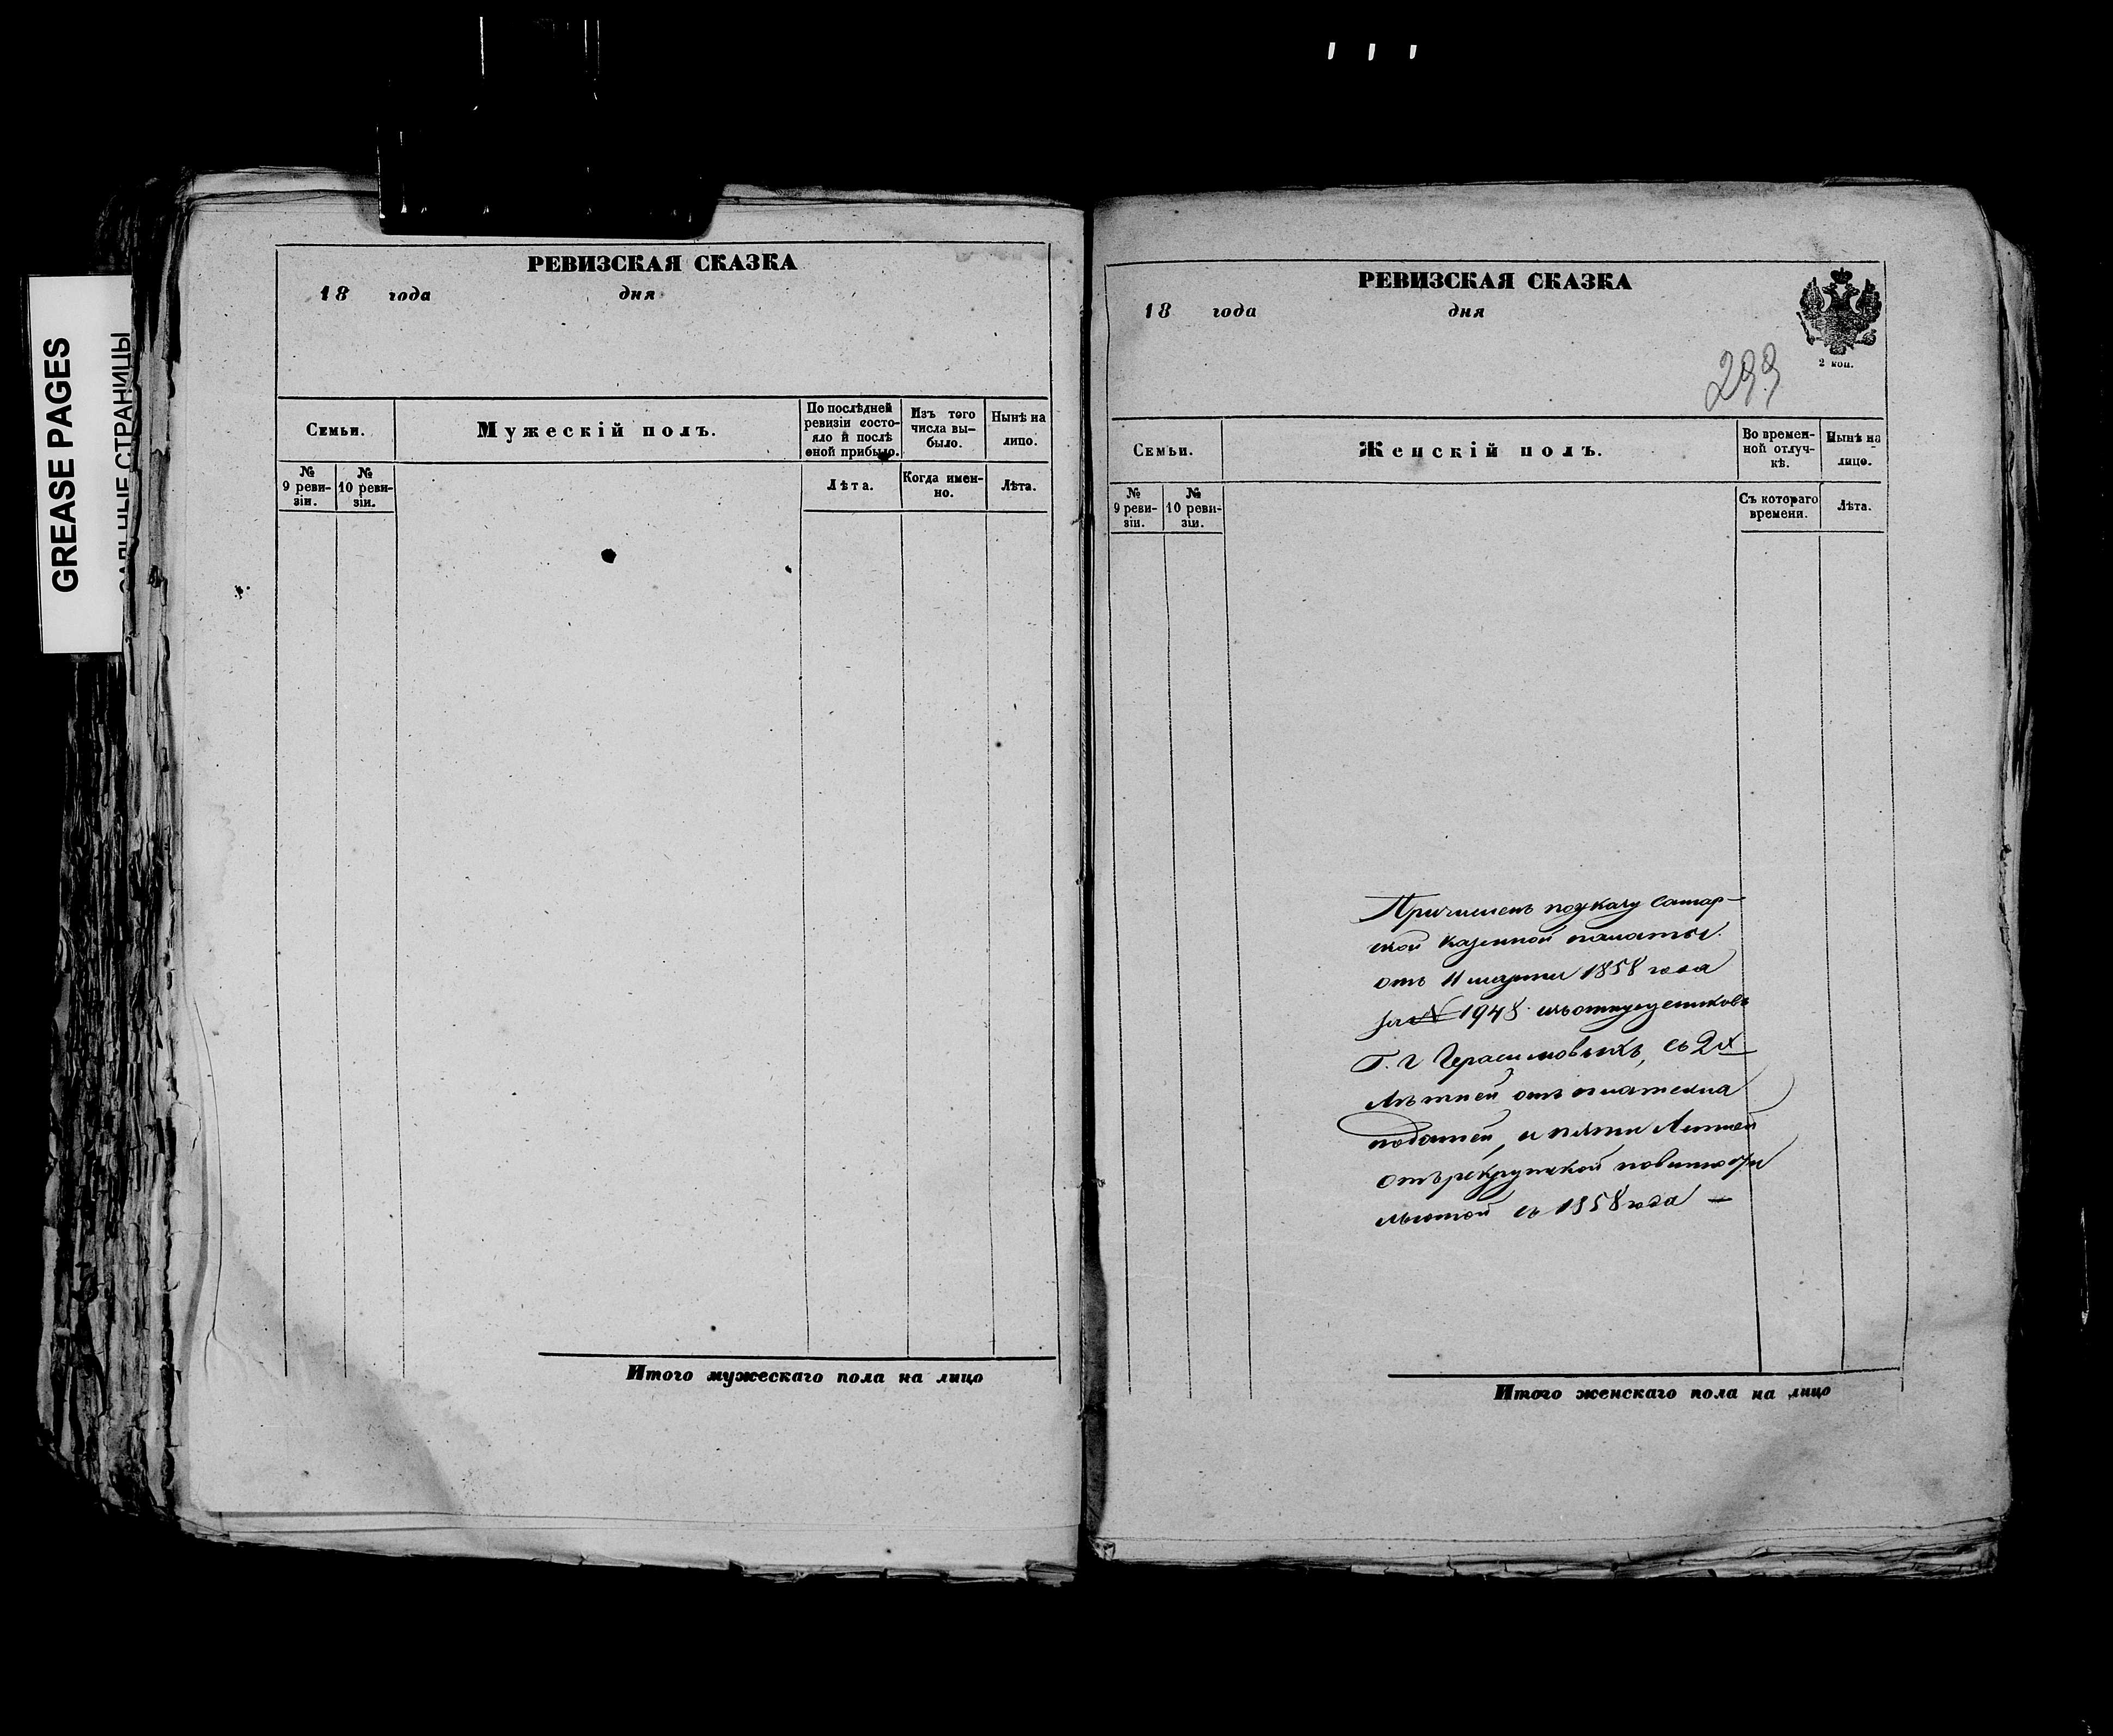 GREASE PAGES
САЛЬНЫЕ СТРАНИЦЫ
РЕВИЗСКАЯ СКАЗКА
18 года дня
Семьи.
Мужескій полъ.
По послѣдней ревизіи состо-
яло и послѣ оной прибыло.
Изъ того числа вы-
было.
Нынѣ на лицо.
№ 9 реви-
зіи.
№ 10 реви-
зіи.
Лѣта.
Когда имен-
но.
Лѣта.
Итого мужескаго пола на лицо
РЕВИЗСКАЯ СКАЗКА
18 года дня
2 коп.
299
Семьи.
Женскій полъ.
Во времен-
ной отлуч-
кѣ.
Нынѣ на лицо.
№ 9 реви-
зіи.
№ 10 реви-
зіи.
Съ котораго времени.
Лѣта.
Причисленъ поуказу Самар-
ской казенной палаты
отъ 11 марта 1858 года
за № 1948 изъ отпущенниковъ
Г. г Герасимовыхъ, съ 2х
Лѣтней отъ платежа
податей, и пяти Летней
отъ рекрутской повинности
льготой съ 1858 года —
Итого женскаго пола на лицо